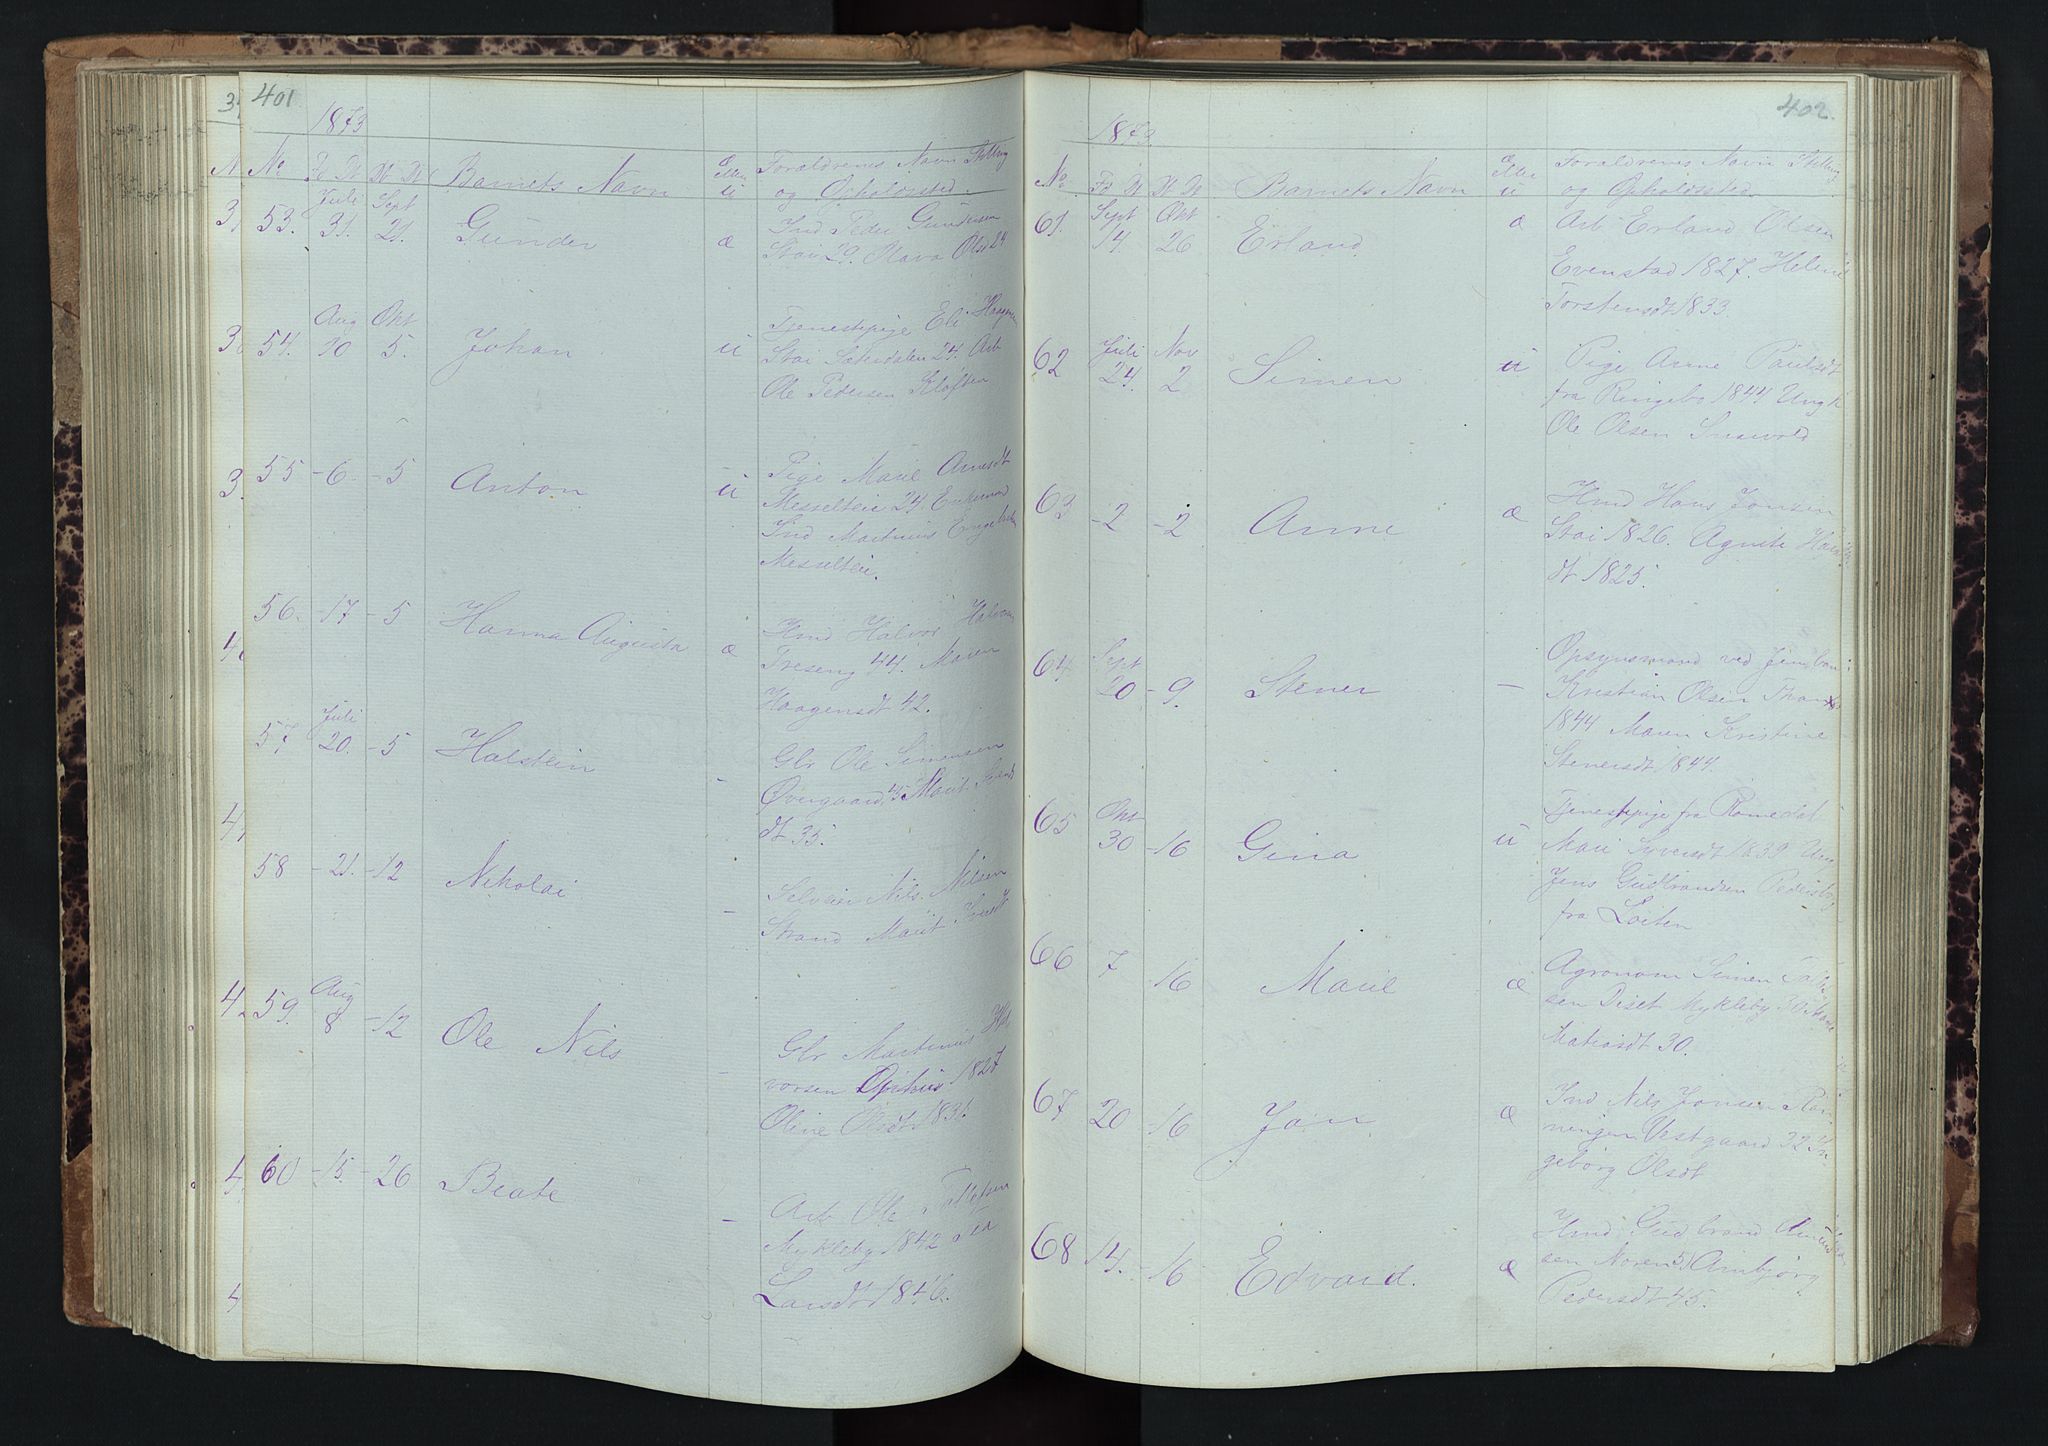 401
1873
No Fd Dt Dt Dt Barnets Navn Æ eller u Forældrenes Navn Stilling
og Opholdssted.
53. Juli 31. Sept 21. Gunder æ Ind Peder
Stai 29. Olava Olsd 24
54. Aug 10 Okt 5. Johan u Tjenestepige Eli Haagens
Stai Sæterdalen 24. Arb
Ole Pedersen Kløften
55 -6. -5 Anton u Pige Marie Arnesdt
Messelteie 24. Enkemand
Ind Martinus Engebrets
Messelteie.
56. -17 -5 Hanna Augusta æ Hmd Halvor Halvors
Treseng 44. Maren
Haagensdt 42.
57. Juli 20. -5 Halstein - Gbr Ole Simensen
Øvergaard, 45 Marit
dt 35.
58 -21. -12 Nikolai - Selveier Nils Nilsen
Strand Marit
59. Aug 8 -12 Ole Nils - Gbr Martinus Hal
vorsen Ophus 1827
Oline Olsdt 1831.
60 -15. -26 Beate - Arb Ole Tollefsen
Mykleby 1842
Larsdt 1846.
402.
1873
No Fd Dt Dt Dt Barnets Navn Æ eller u Forældrenes Navn Stilling
og Opholdssted
61. Sept 14. Okt 26 Erland æ Arb Erland Olsen
Evenstad 1827. Helene
Torstensdt 1833.
62 Juli 24. Nov 2 Simen u Pige Anne Paulsdt
fra Ringebo 1844 Ungk
Ole Olsen
63 -2 -2 Anne æ Hmd Hans Jonsen
Stai 1826. Agnete
dt 1825.
64. Sept 20 -9. Stener - Opsynsmand ved Jernban
Kristian Olsen
1844 Maren Kristine
Stenersdt 1844.
65 Okt 30 -16 Gina u Tjenestepige fra Romedal
Mari Iversdt 1839 Ung
Jens Gudbrandsen
fra Løiten
66 7 -16 Marie æ Agronom Simen
sen Diset Mykleby 30
Matiasdt 30.
67 20 -16 Jon æ Ind Nils Jonsen Røn
ningen Vestgaard 32 In
geborg Olsdt
68 14. -16 Edvard. æ Hmd Gudbrand Amund
sen Noren 51 Arnbjørg
Pedersdt 45.